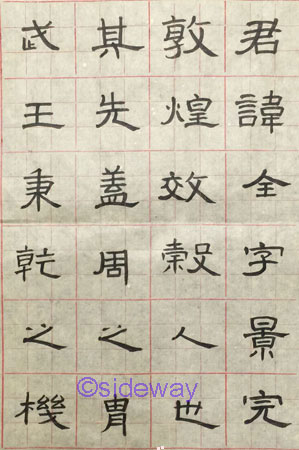 君諱全字景完
敦煌效穀人也
其先蓋周之胄
武王秉乾之機
©sideway